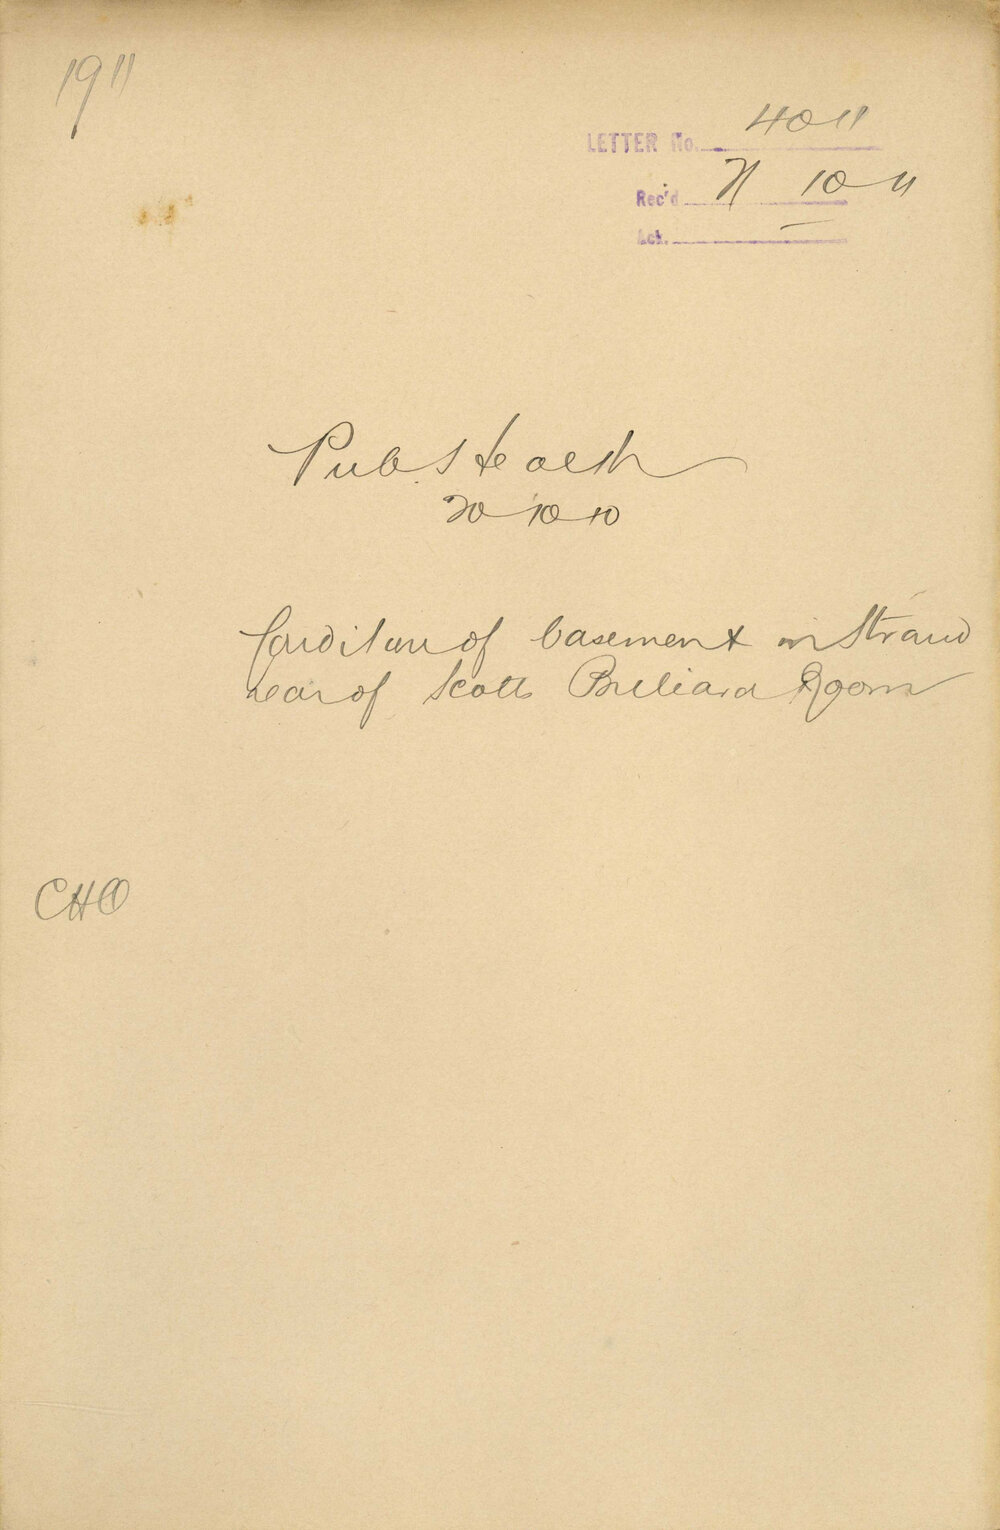 1911
LETTER No. 4011
Rec'd 21 10 11
Ack. —
Pub. Health
20 10 10
Condition of basement in Strand
rear of Scotts Billiard Room
CHO